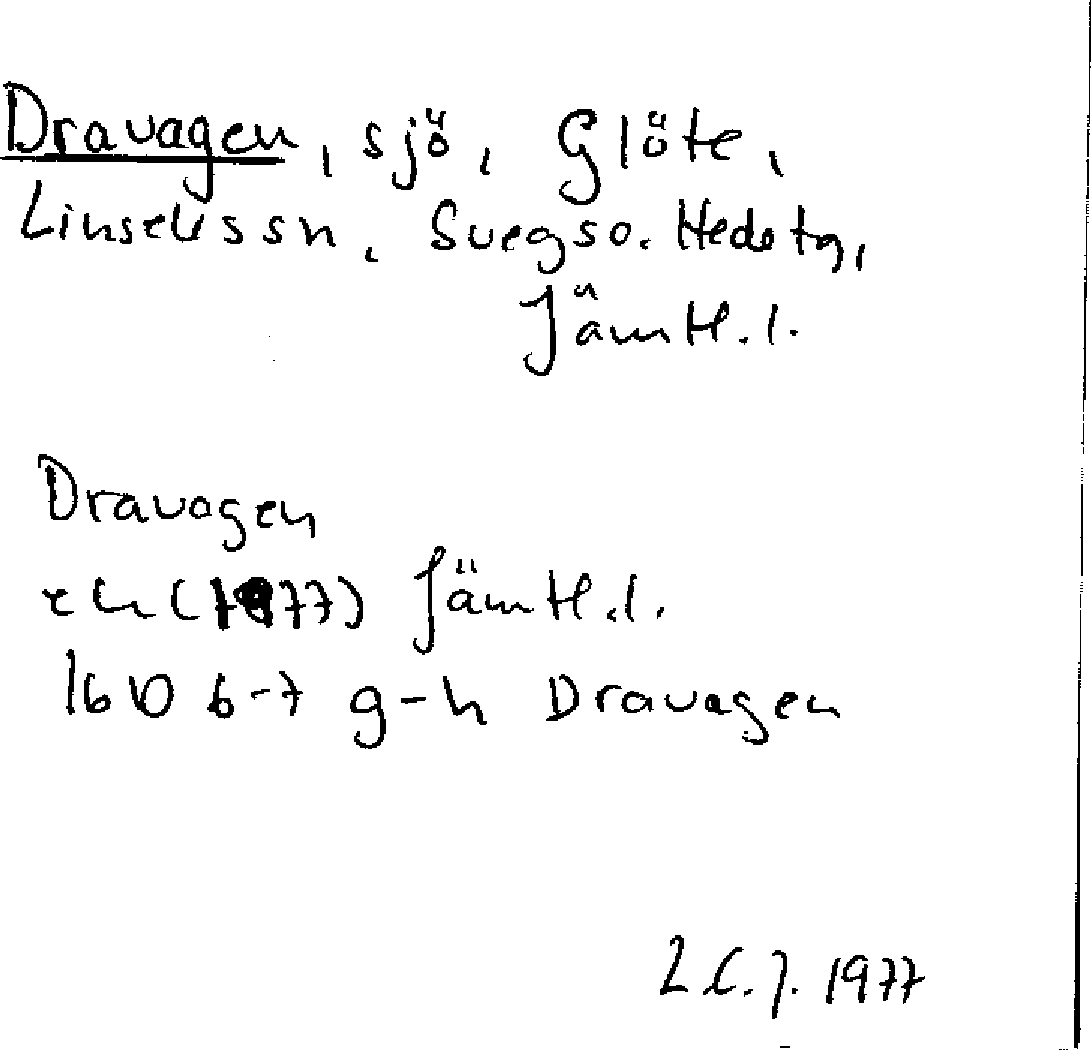 Dravagen, sjö, Glöte,
Linsells sn, Svegs o. Hede tg,
Jämtl. l.
Dravagen
ek (1977) Jämtl. l.
16D 6-7 g-h Dravagen
1977